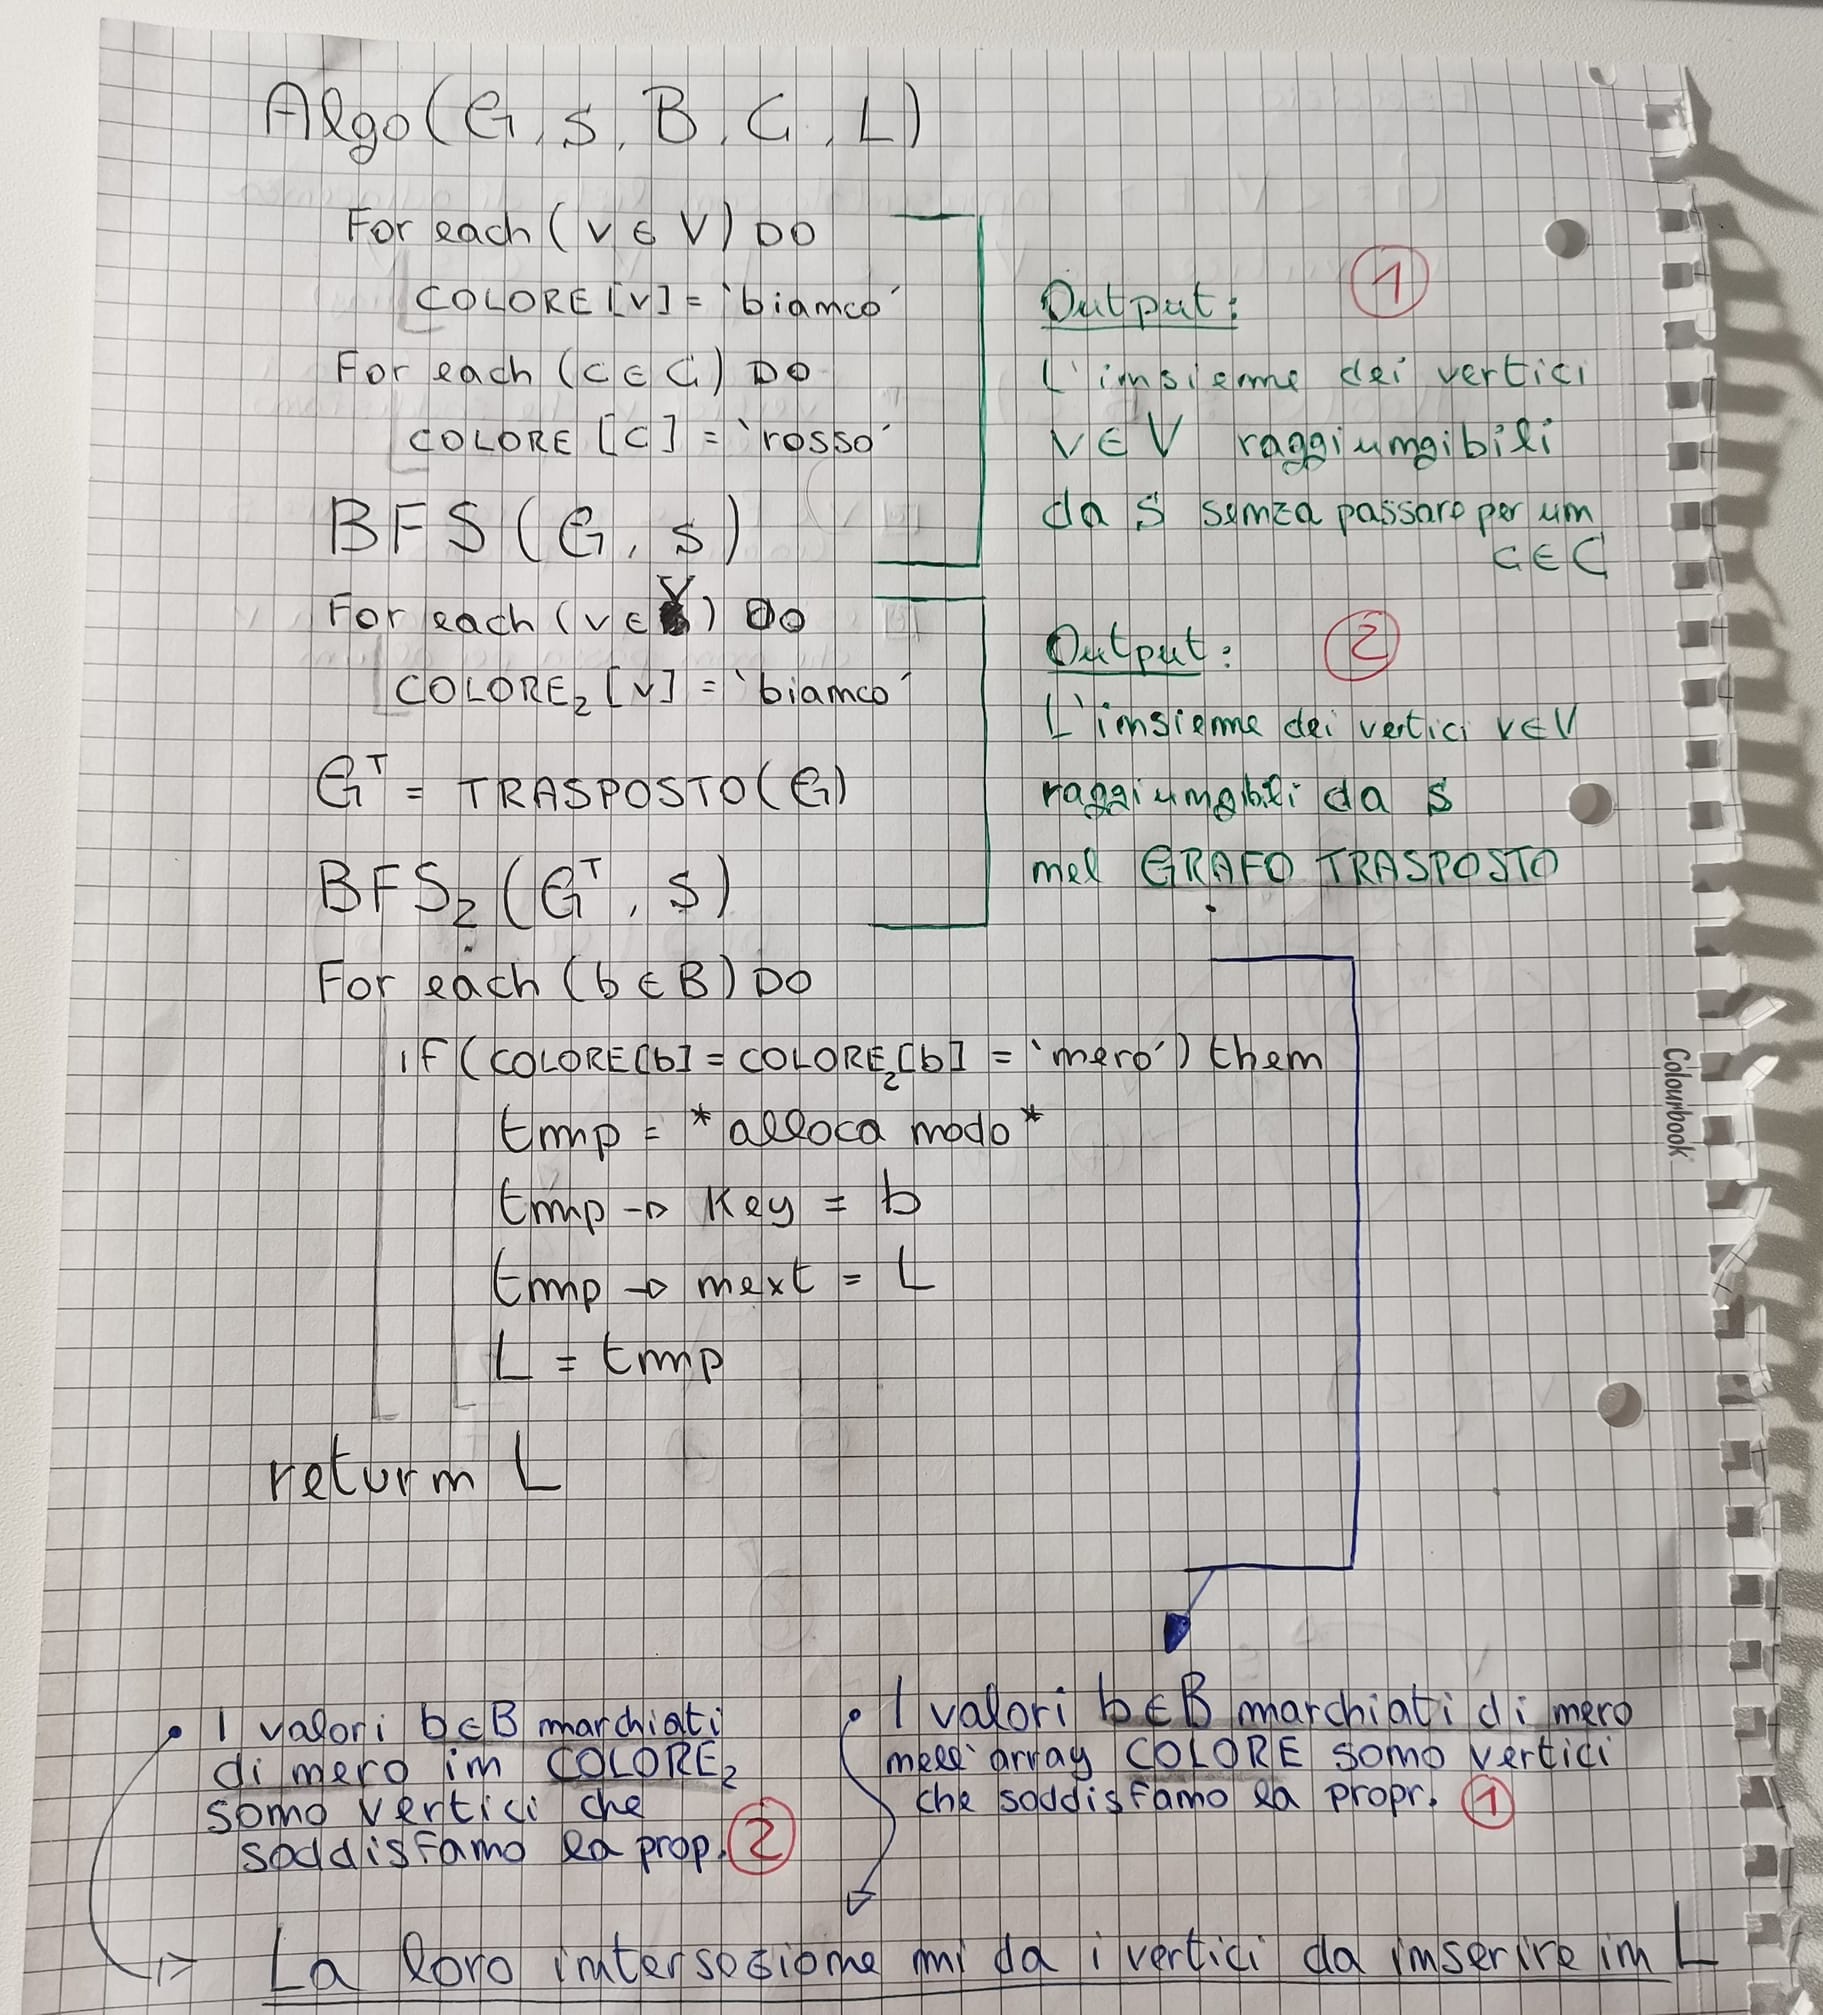 Algo(G, s, B, C, L)
For each (v ∈ V) DO
COLORE[v] = 'bianco'
For each (c ∈ C) DO
COLORE[c] = 'rosso'
BFS(G, s)
For each (v ∈ V) DO
COLORE₂[v] = 'bianco'
Gᵀ = TRASPOSTO(G)
BFS₂(Gᵀ, s)
For each (b ∈ B) DO
IF (COLORE[b] = COLORE₂[b] = 'nero') then
tmp = *alloca nodo*
tmp → Key = b
tmp → next = L
L = tmp
return L
Output: 1
L'insieme dei vertici
v ∈ V raggiungibili
da s senza passare per un
c ∈ C
Output: 2
L'insieme dei vertici v ∈ V
raggiungibili da s
nel GRAFO TRASPOSTO
Colourbook
• I valori b ∈ B marchiati
di nero in COLORE₂
sono vertici che
soddisfano la prop. 2
• I valori b ∈ B marchiati di nero
nell'array COLORE sono vertici
che soddisfano la propr. 1
La loro intersezione mi da i vertici da inserire in L